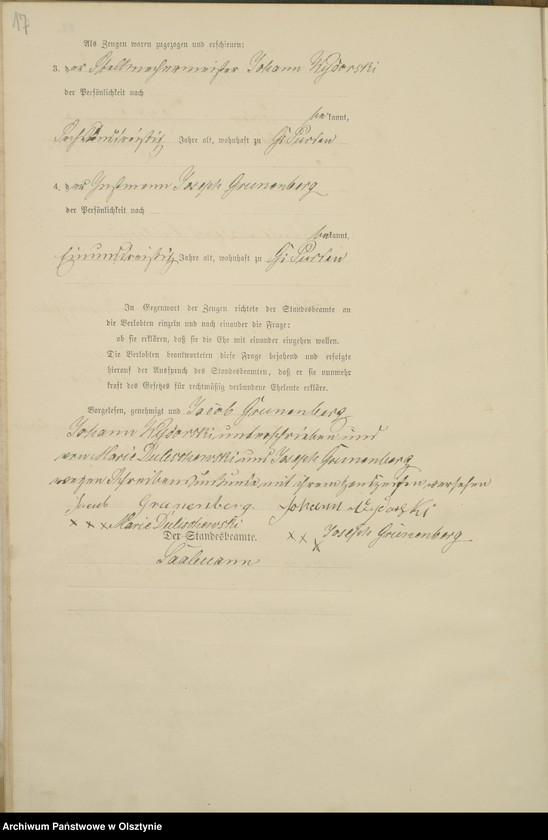 17
Als Zeugen waren zugezogen und erschienen:
3. der Stellmachermeister Johann
der Persönlichkeit nach
bekannt,
Jahre alt, wohnhaft zu Gr. Purden
4. der Instmann Joseph Grunenberg
der Persönlichkeit nach
bekannt,
einunddreißig Jahre alt, wohnhaft zu Gr. Purden
In Gegenwart der Zeugen richtete der Standesbeamte an
die Verlobten einzeln und nach einander die Frage:
ob sie erklären, daß sie die Ehe mit einander eingehen wollen.
Die Verlobten beantworteten diese Frage bejahend und erfolgte
hierauf der Ausspruch des Standesbeamten, daß er sie nunmehr
kraft des Gesetzes für rechtmäßig verbundene Eheleute erkläre.
Vorgelesen, genehmigt und Jacob Grunenberg
Johann unterschrieben und
von Marie Duleschewski und Joseph Grunenberg
wegen Schreibensunkunde mit ihrem Handzeichen versehen
Jacob Grunenberg. Johann
xxx Marie Duleschewski
Der Standesbeamte. xxx Joseph Grunenberg
Saalmann
Archiwum Państwowe w Olsztynie